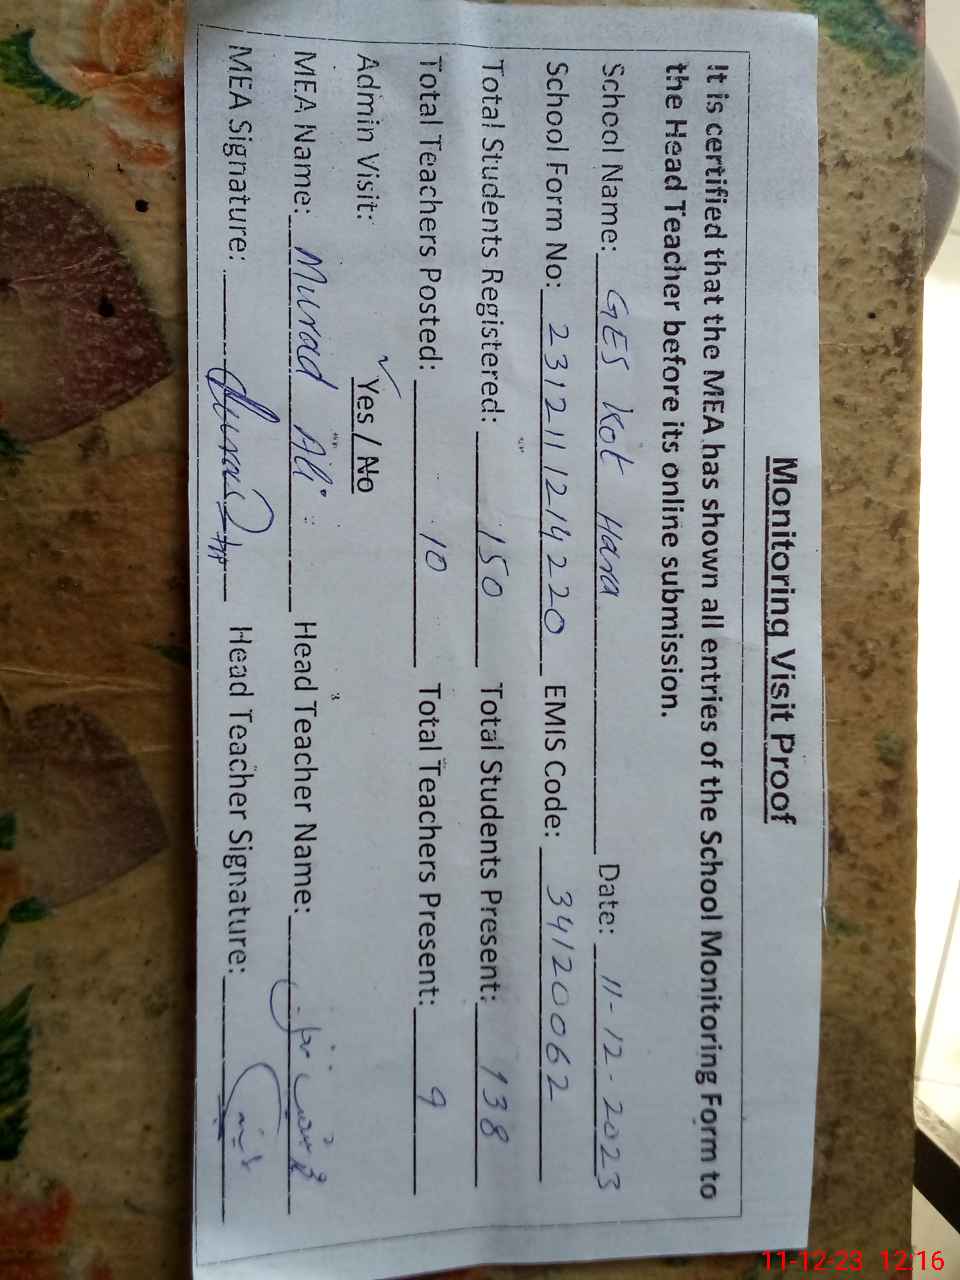 Monitoring Visit Proof
It is certified that the MEA has shown all entries of the School Monitoring Form to
the Head Teacher before its online submission.
School Name: GES Kot Hara Date: 11-12-2023
School Form No: 2312111214220 EMIS Code: 34120062
Total Students Registered: 150 Total Students Present: 138
Total Teachers Posted: 10 Total Teachers Present: 9
Admin Visit: ✓Yes / No
MEA Name: Murad Ali Head Teacher Name:
MEA Signature: Head Teacher Signature:
11-12-23 12:16